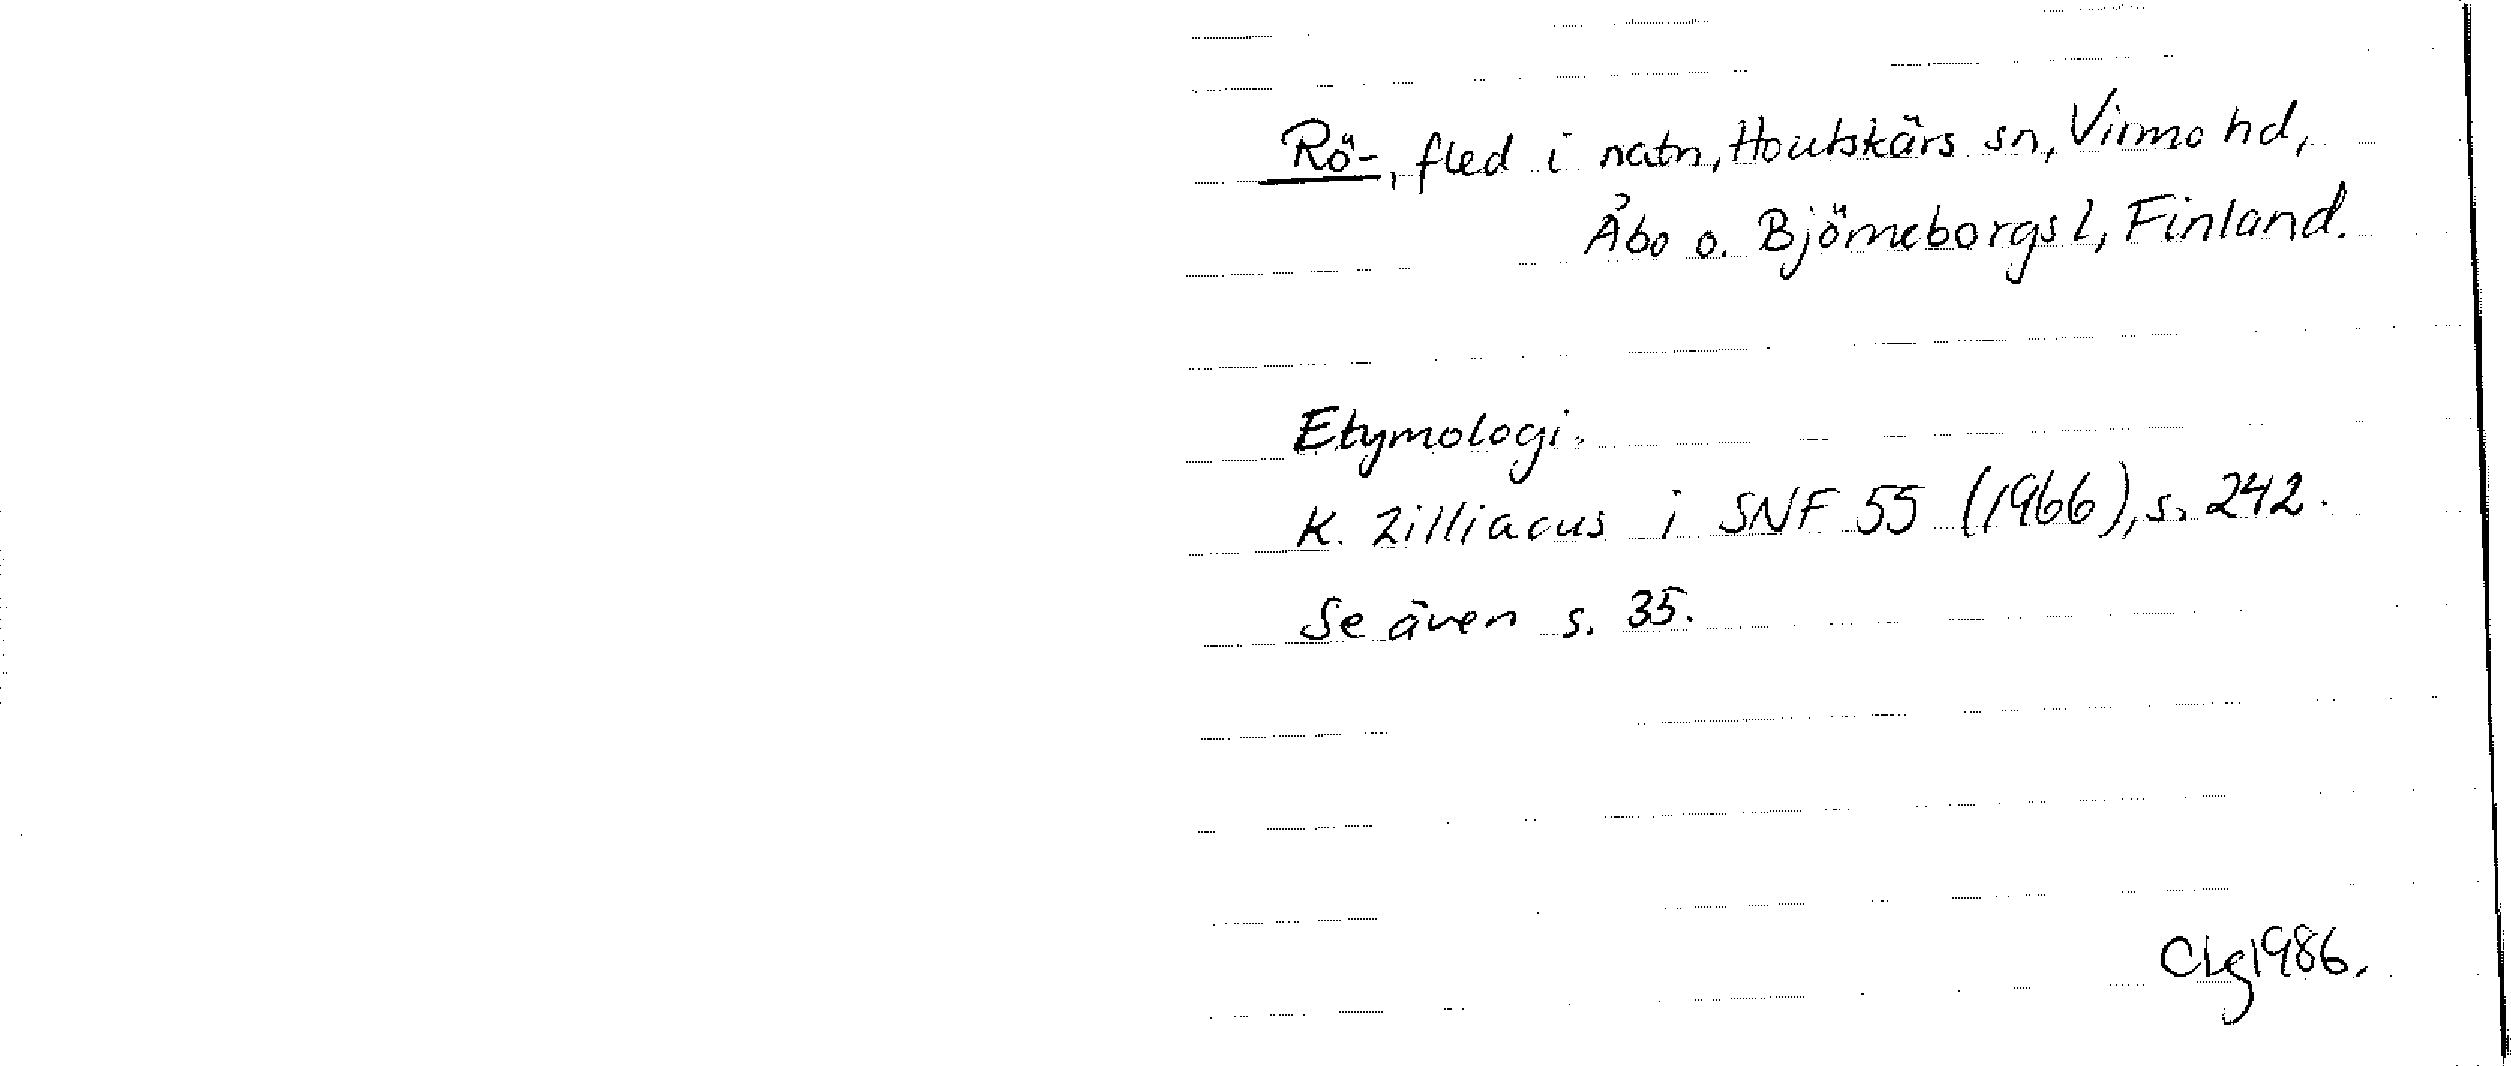 Rö-, fled i natn, Houtskärs sn, Virmo hd,
Åbo o. Björneborgs l, Finland.
Etymologi.
K. Zilliacus i SNF 55 (1966), s. 242.
Se även s. 35.
CLg 1986.